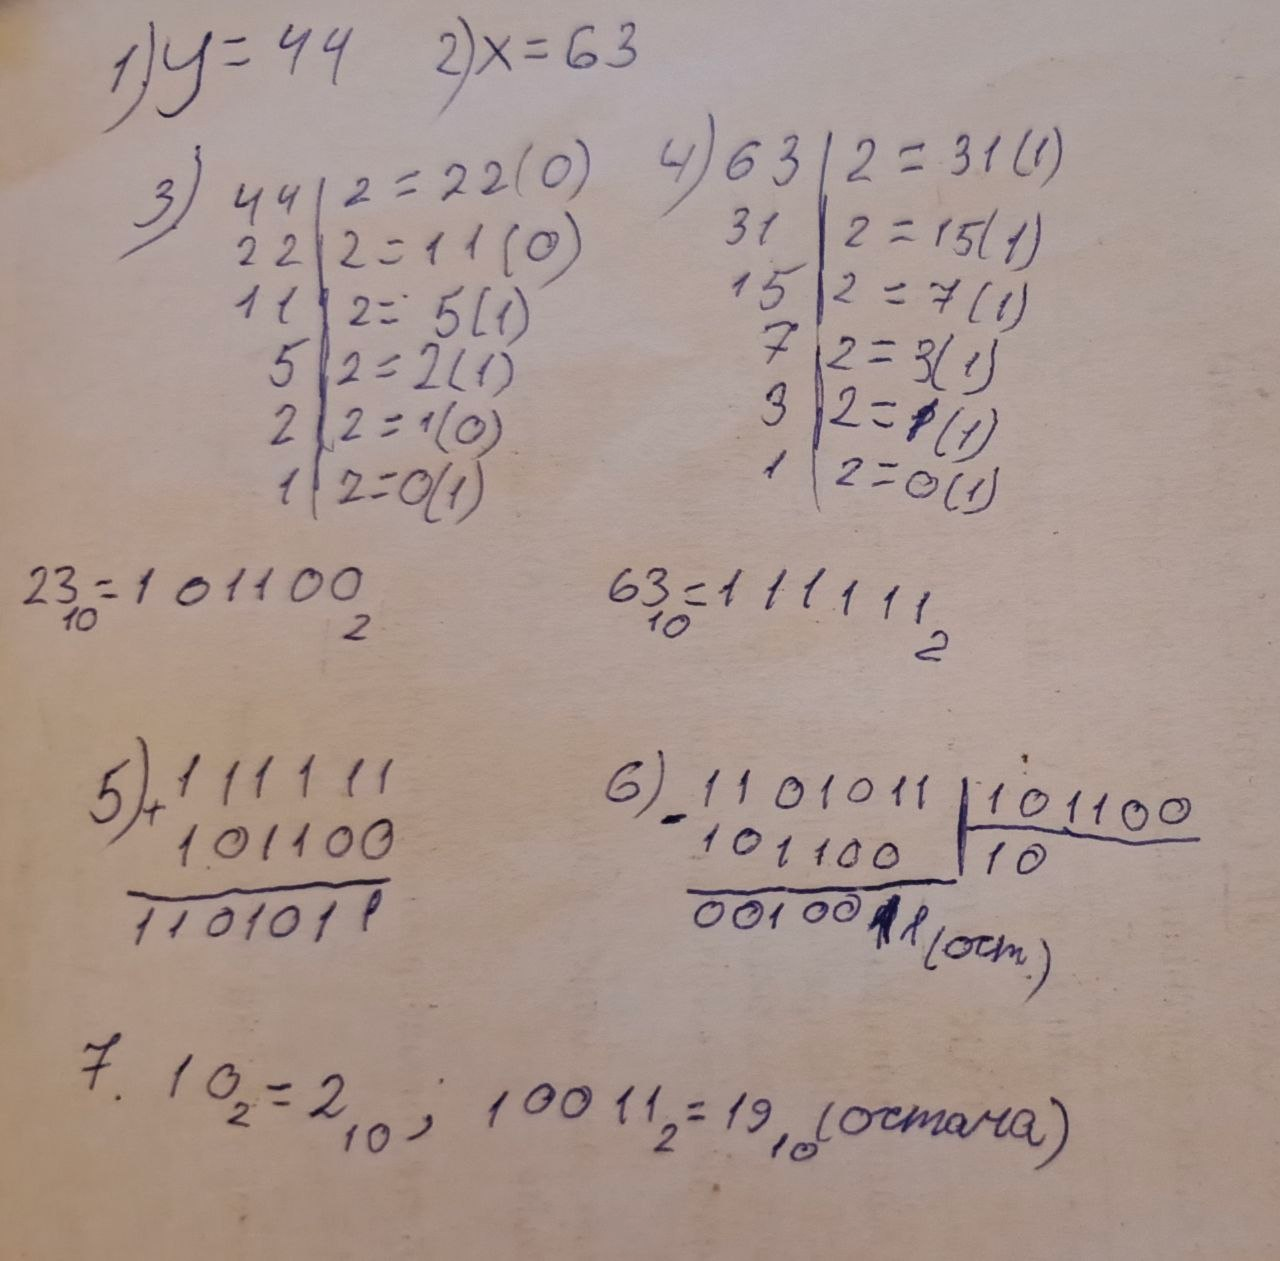 1) y = 44 2) x = 63
3) 44 | 2 = 22 (0)
22 | 2 = 11 (0)
11 | 2 = 5 (1)
5 | 2 = 2 (1)
2 | 2 = 1 (0)
1 | 2 = 0 (1)
4) 63 | 2 = 31 (1)
31 | 2 = 15 (1)
15 | 2 = 7 (1)
7 | 2 = 3 (1)
3 | 2 = 1 (1)
1 | 2 = 0 (1)
23₁₀ = 101100₂
63₁₀ = 111111₂
5) + 111111
101100
1101011
6) - 1101011 | 101100
101100 | 10
0010011 (ост.)
7. 10₂ = 2₁₀ ; 10011₂ = 19₁₀ (остача)